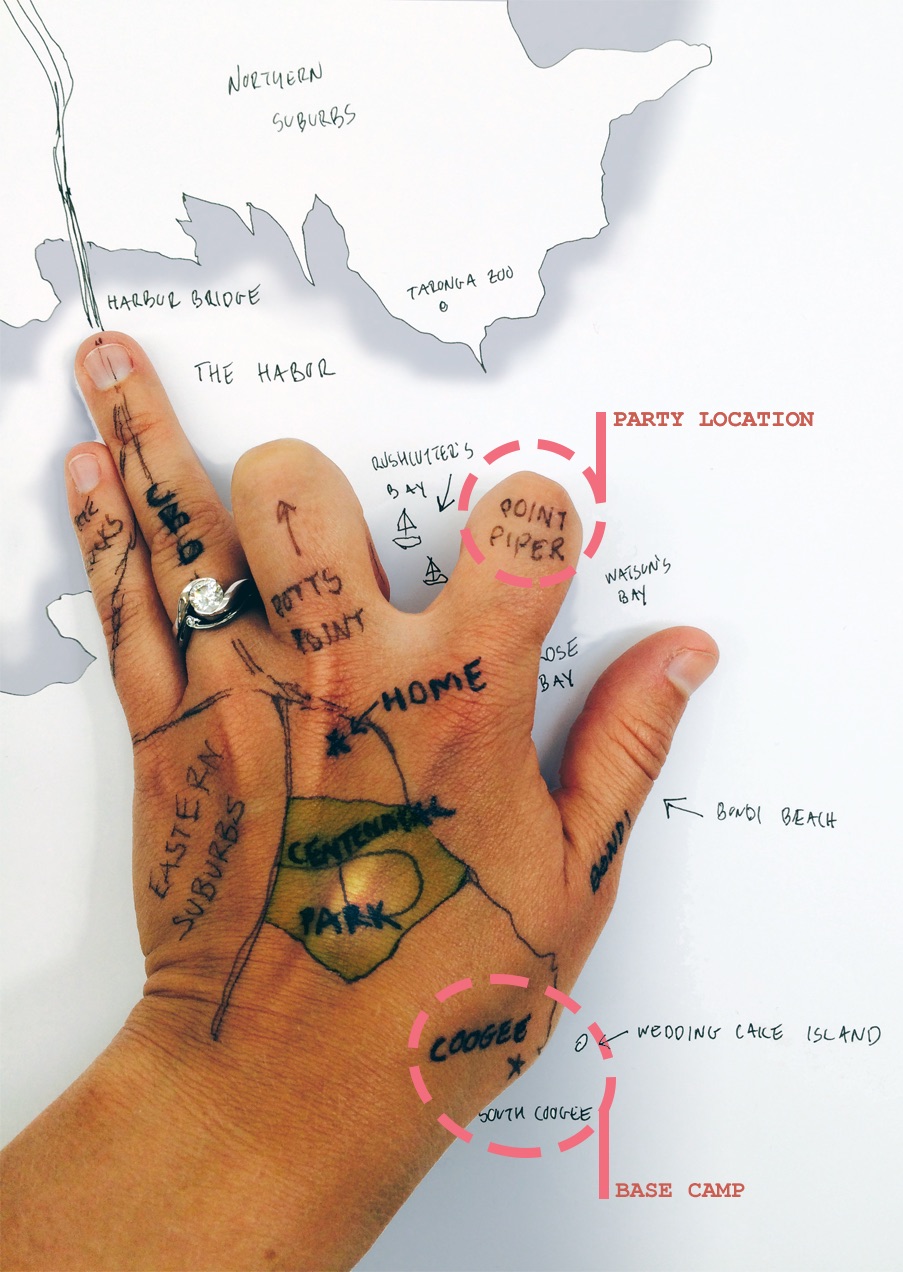 NORTHERN
SUBURBS
HARBOR BRIDGE
TARONGA ZOO
THE HABOR
PARTY LOCATION
RUSHCUTTER'S
BAY
POINT
PIPER
CBD
POTTS
POINT
WATSON'S
BAY
OSE
BAY
HOME
EASTERN
SUBURBS
BONDI BEACH
BONDI
CENTENNIAL
PARK
COOGEE
WEDDING CAKE ISLAND
SOUTH COOGEE
BASE CAMP